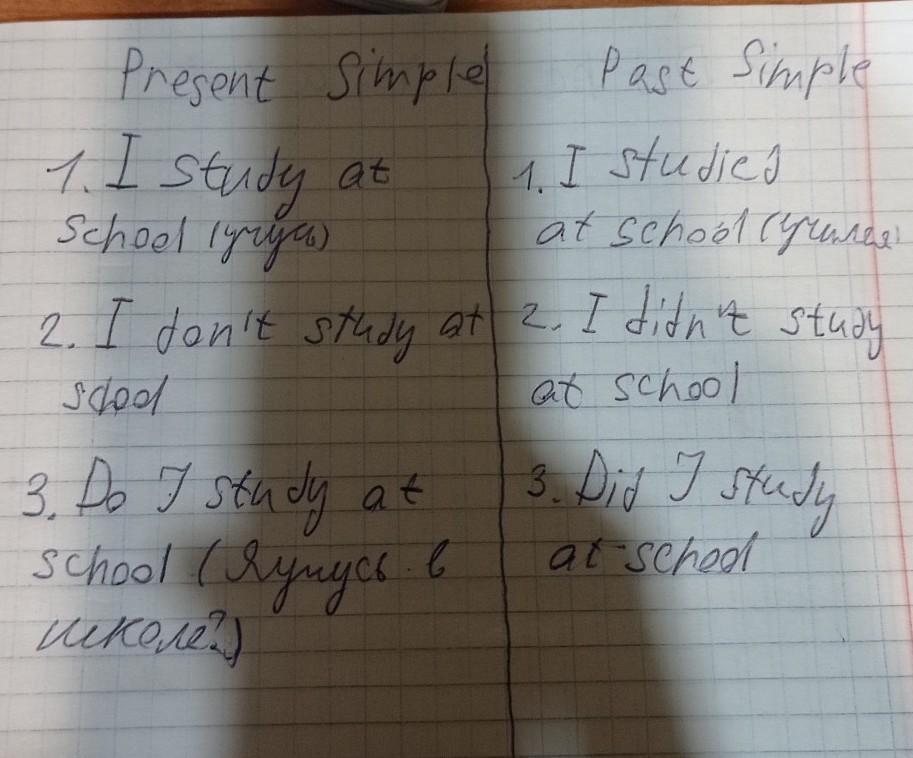 Present Simple
1. I study at
school (учусь)
2. I don't study at
school
3. Do I study at
school (Я учусь в
школе?)
Past Simple
1. I studied
at school (учился)
2. I didn't study
at school
3. Did I study
at school